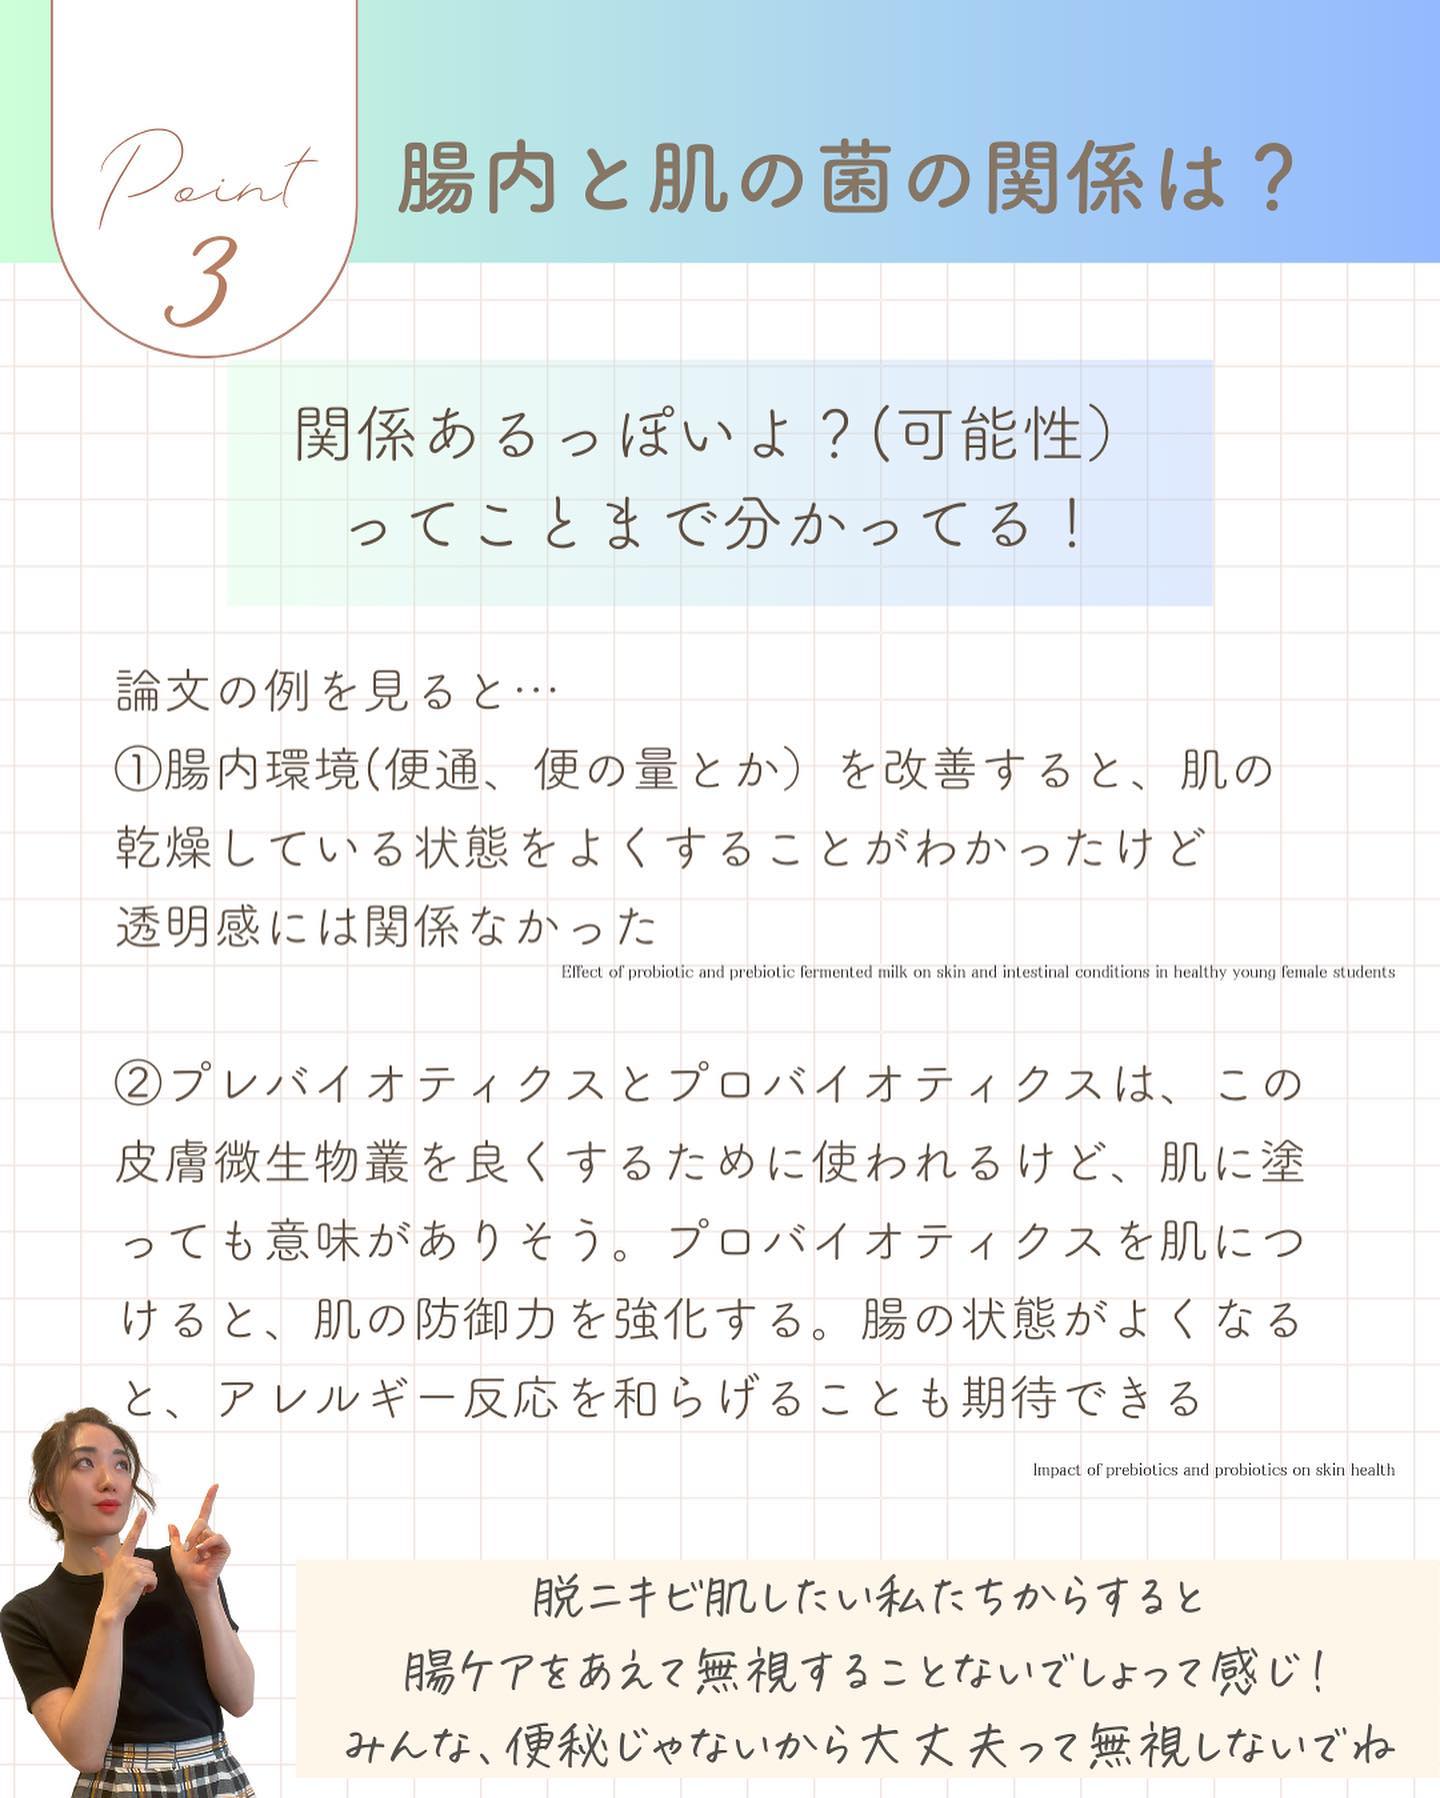 Point
3
腸内と肌の菌の関係は？
関係あるっぽいよ？(可能性）
ってことまで分かってる！
論文の例を見ると…
①腸内環境(便通、便の量とか）を改善すると、肌の
乾燥している状態をよくすることがわかったけど
透明感には関係なかった
Effect of probiotic and prebiotic fermented milk on skin and intestinal conditions in healthy young female students
②プレバイオティクスとプロバイオティクスは、この
皮膚微生物叢を良くするために使われるけど、肌に塗
っても意味がありそう。プロバイオティクスを肌につ
けると、肌の防御力を強化する。腸の状態がよくなる
と、アレルギー反応を和らげることも期待できる
Impact of prebiotics and probiotics on skin health
脱ニキビ肌したい私たちからすると
腸ケアをあえて無視することないでしょって感じ！
みんな、便秘じゃないから大丈夫って無視しないでね